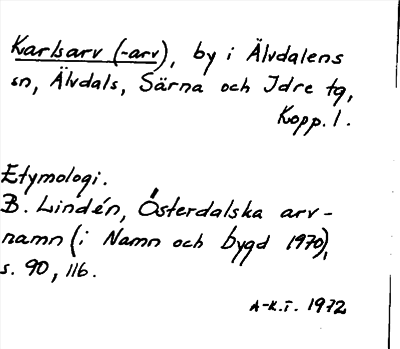 Karlsarv (-arv), by i Älvdalens
sn, Älvdals, Särna och Idre tg,
Kopp. l.
Etymologi.
B. Lindén, Österdalska arv-
namn (i Namn och bygd 1970),
s. 90, 116.
A-K.T. 1972